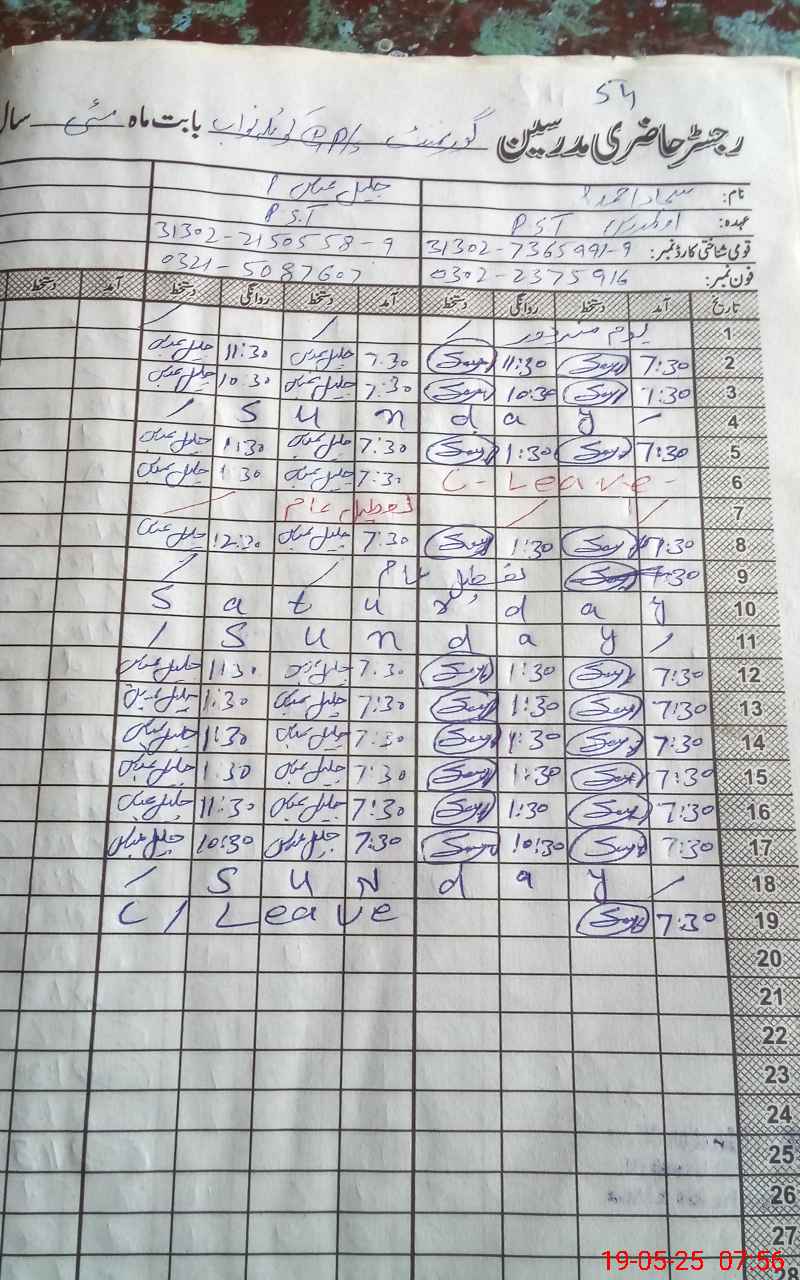 54
رجسٹر حاضری مدرسین گورنمنٹ بابت ماہ مئی سال
نام: جلیل عباس
عہدہ: P.S.T P.S.T
قومی شناختی کارڈ نمبر: 31302-7365991-9 31302-2150558-9
فون نمبر: 0302-2375916 0321-5087607
تاریخ آمد دستخط روانگی دستخط آمد دستخط روانگی دستخط آمد دستخط
1 یوم مزدور
2 7:30 11:30 7:30 جلیل عباس 11:30 جلیل عباس
3 7:30 10:30 7:30 جلیل عباس 10:30 جلیل عباس
4 Sunday
5 7:30 1:30 7:30 جلیل عباس 1:30 جلیل عباس
6 C-Leave- 7:30 جلیل عباس 1:30 جلیل عباس
7 تعطیل عام
8 7:30 1:30 7:30 جلیل عباس 12:30 جلیل عباس
9 تعطیل عام
10 Saturday
11 Sunday
12 7:30 1:30 7:30 جلیل عباس 11:30 جلیل عباس
13 7:30 1:30 7:30 جلیل عباس 1:30 جلیل عباس
14 7:30 1:30 7:30 جلیل عباس 11:30 جلیل عباس
15 7:30 1:30 7:30 جلیل عباس 1:30 جلیل عباس
16 7:30 1:30 7:30 جلیل عباس 11:30 جلیل عباس
17 7:30 10:30 7:30 جلیل عباس 10:30 جلیل عباس
18 SuNday
19 7:30 C/Leave
20
21
22
23
24
25
26
27
28
19-05-25 07:56